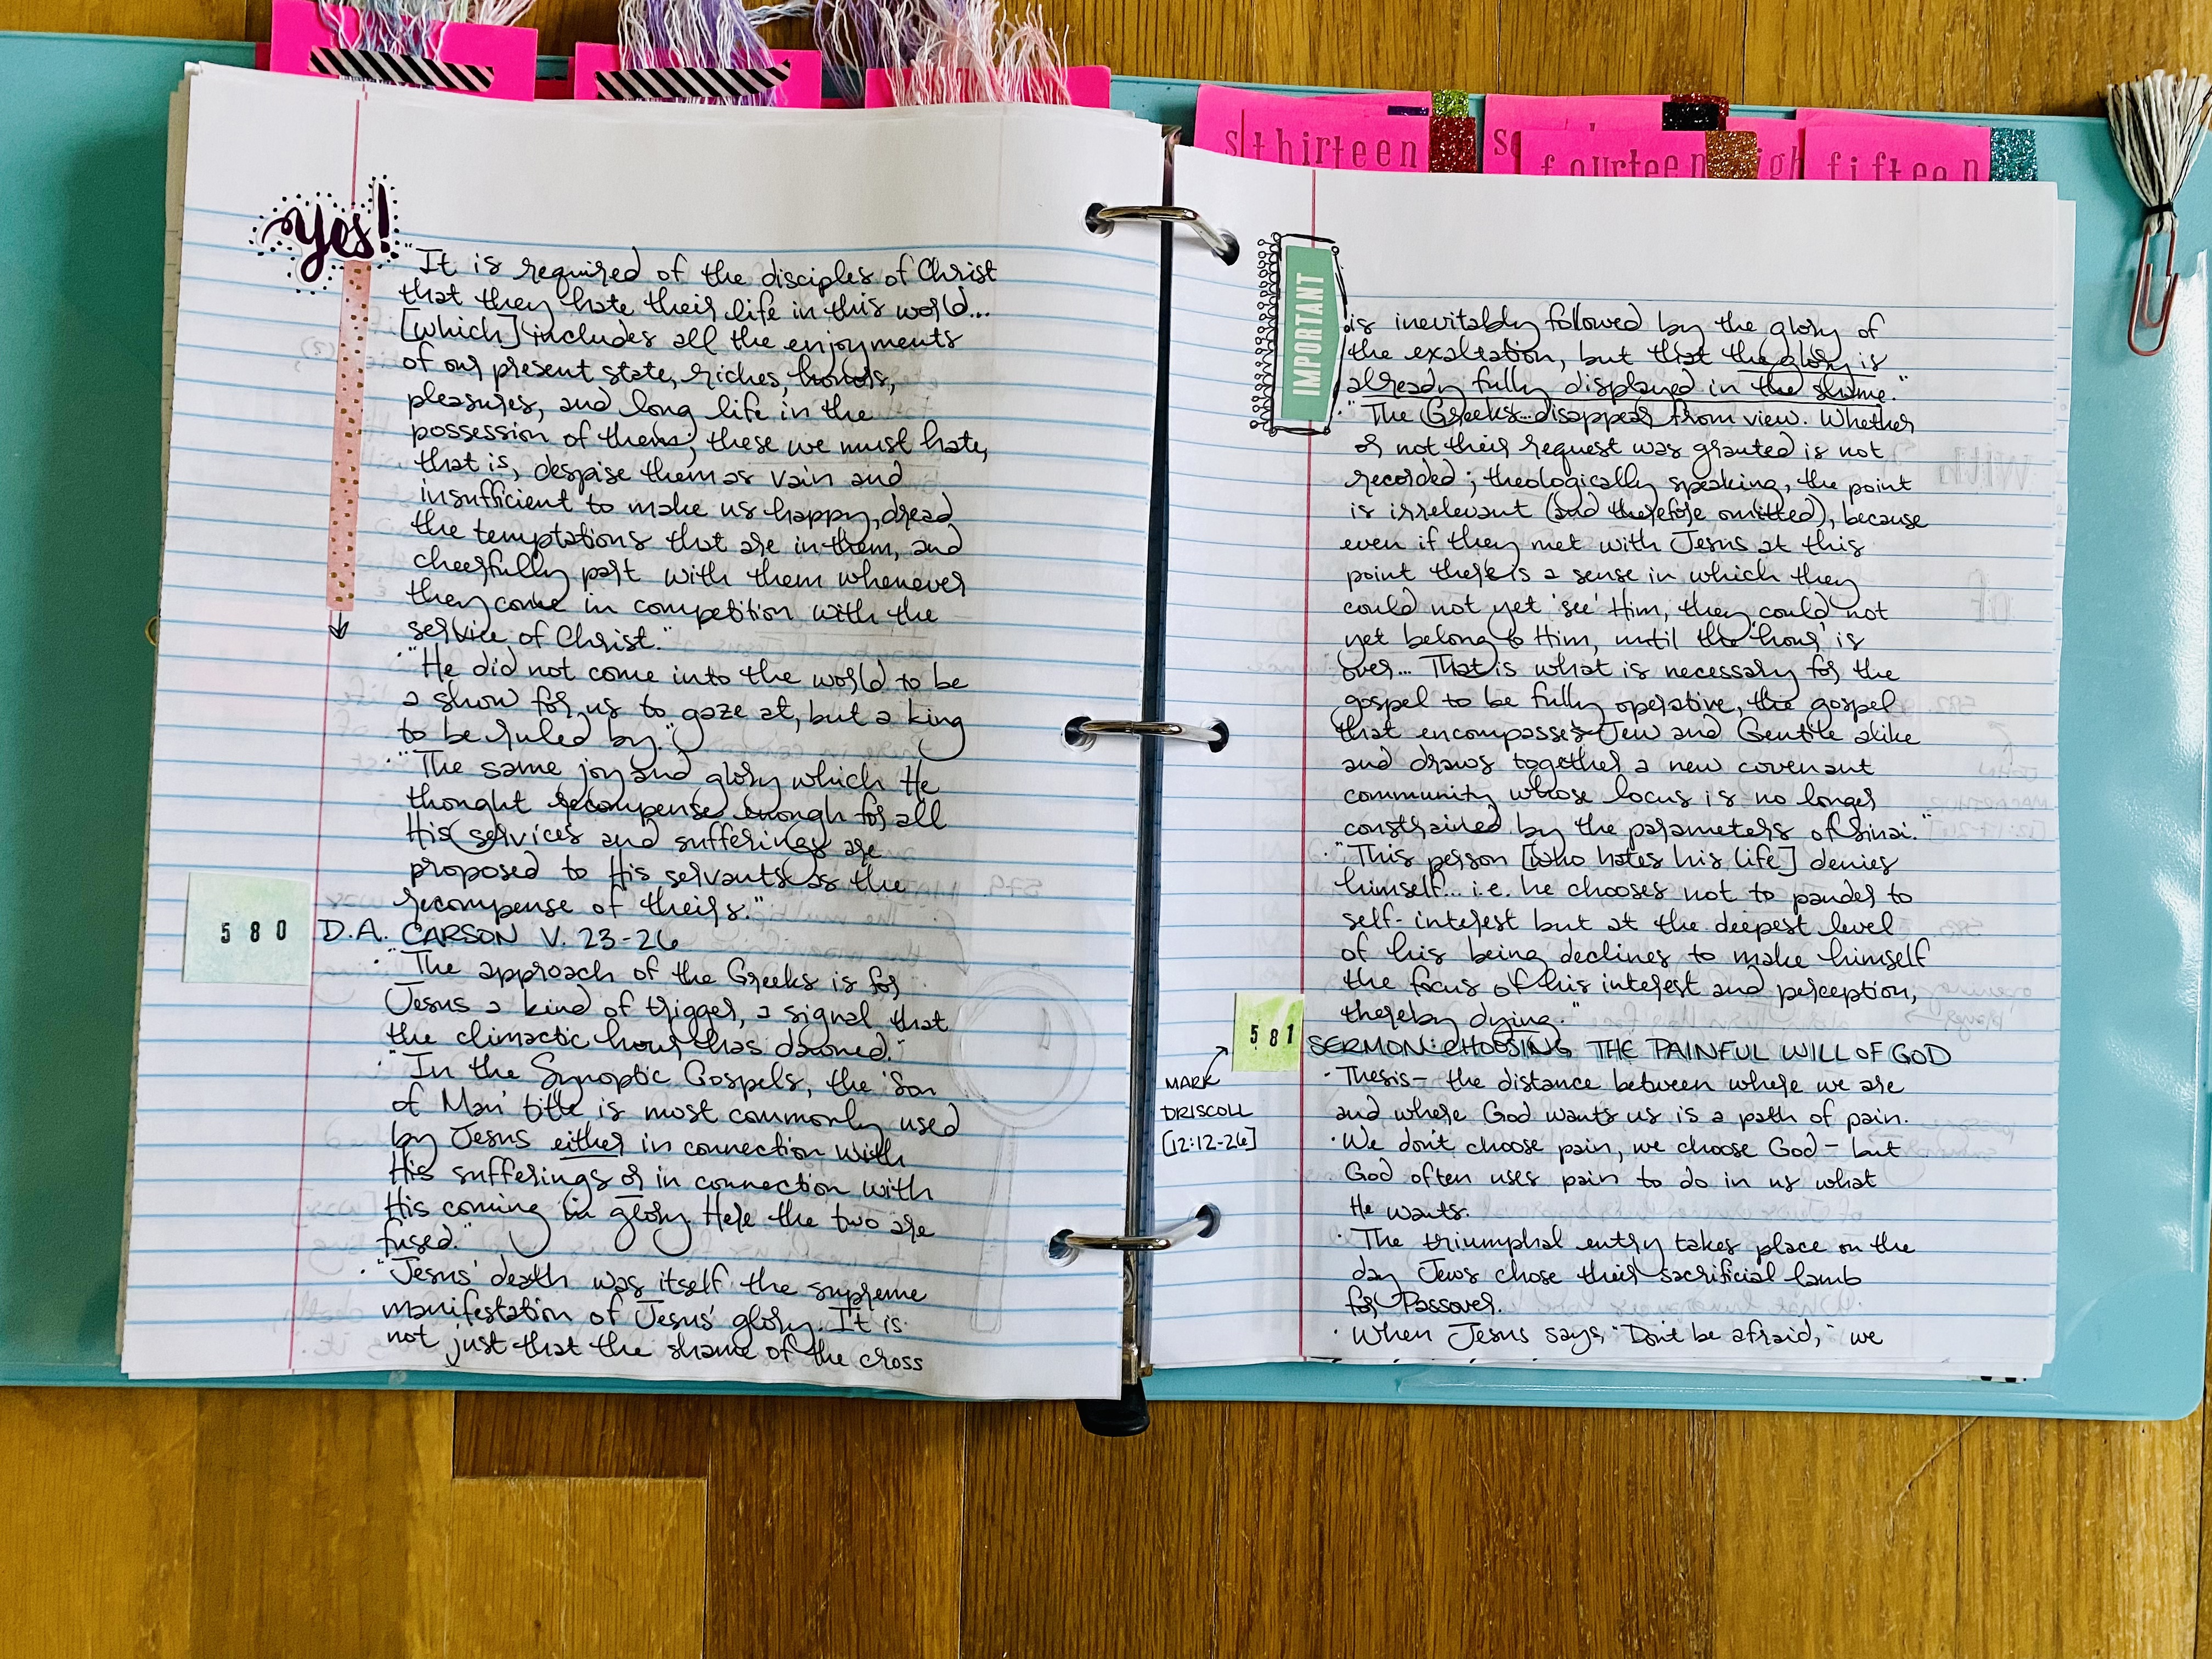 sthirteen
fourteen
fifteen
yes!
"It is required of the disciples of Christ
that they hate their life in this world...
[which] includes all the enjoyments
of our present state, riches, honors,
pleasures, and long life in the
possession of them; these we must hate,
that is, despise them as vain and
insufficient to make us happy, dread
the temptations that are in them, and
cheerfully part with them whenever
they come in competition with the
service of Christ."
·"He did not come into the world to be
a show for us to gaze at, but a king
to be ruled by."
·"The same joy and glory which He
thought recompense enough for all
His services and sufferings are
proposed to His servants as the
recompense of theirs."
580 D.A. CARSON V. 23-26
·"The approach of the Greeks is for
Jesus a kind of trigger, a signal that
the climactic hour has dawned."
·"In the Synoptic Gospels, the 'Son
of Man' title is most commonly used
by Jesus either in connection with
His sufferings or in connection with
His coming in glory. Here the two are
fused."
·"Jesus' death was itself the supreme
manifestation of Jesus' glory. It is
not just that the shame of the cross
IMPORTANT
is inevitably followed by the glory of
the exaltation, but that the glory is
already fully displayed in the shame."
·"The Greeks... disappear from view. Whether
or not their request was granted is not
recorded; theologically speaking, the point
is irrelevant (and therefore omitted), because
even if they met with Jesus at this
point there is a sense in which they
could not yet 'see' Him, they could not
yet belong to Him, until the 'hour' is
over... That is what is necessary for the
gospel to be fully operative, the gospel
that encompasses Jew and Gentile alike
and draws together a new covenant
community whose locus is no longer
constrained by the parameters of Sinai."
·"This person [who hates his life] denies
himself... i.e. he chooses not to pander to
self-interest but at the deepest level
of his being declines to make himself
the focus of his interest and perception,
thereby dying."
581 SERMON: CHOOSING THE PAINFUL WILL OF GOD
MARK
DRISCOLL
[12:12-26]
·Thesis- the distance between where we are
and where God wants us is a path of pain.
·We don't choose pain, we choose God- but
God often uses pain to do in us what
He wants.
·The triumphal entry takes place on the
day Jews chose their sacrificial lamb
for Passover.
·When Jesus says, "Don't be afraid," we